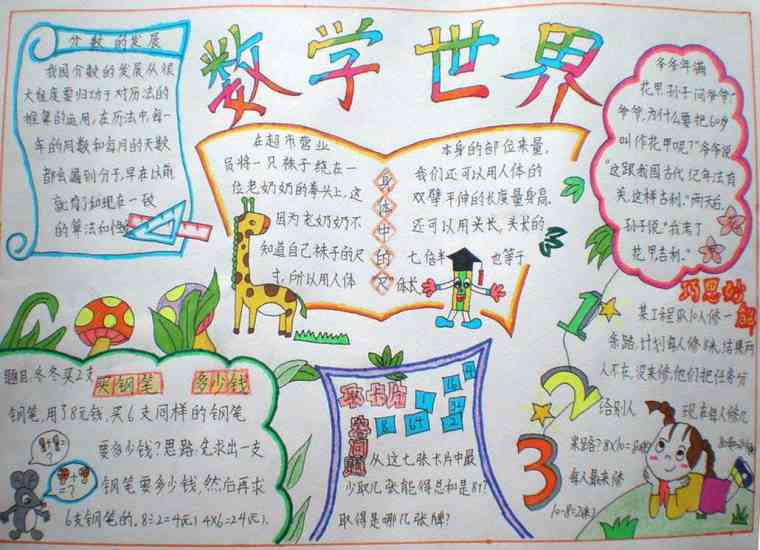 数学世界
分数的发展
我国分数的发展从很
大程度要归功于对历法的
框架的运用,在历法中,每一
年的月数和每月的天数
都会遇到分子,早在以前
就有了和现在一致
的算法和
在超市营业
员将一只袜子绕在一
位老奶奶的拳头上,这
因为老奶奶不
知道自己袜子的尺
寸,所以用人体
身体中的尺
本身的部位来量。
我们还可以用人体的
双臂平伸的长度量身高。
还可以用头长,头长的
七倍半 也等于
身长
爷爷年满
花甲,孙子问爷爷:"
爷爷,为什么要把60岁
叫作花甲呢?"爷爷说
"这跟我国古代纪年法有
关,这样吉利。"两天后,
孙子说"我考了
花甲吉利。"
题目:冬冬买2支
买钢笔 多少钱
钢笔,用了8元钱,买6支同样的钢笔
要多少钱?思路:先求出一支
钢笔要多少钱,然后再求
6支钢笔的。8÷2=4(元) 4×6=24(元)
取卡片
问题
从这七张卡片中最
少取几张能得总和是87?
取得是哪几张牌?
1
2
3
巧思妙解
某工程队10人修一
条路,计划每人修8米,结果两
人不在,没来修,他们把任务分
给别人 现在每人修几
米路?8×10=80(米)
每人最来修
10-8=2(米)